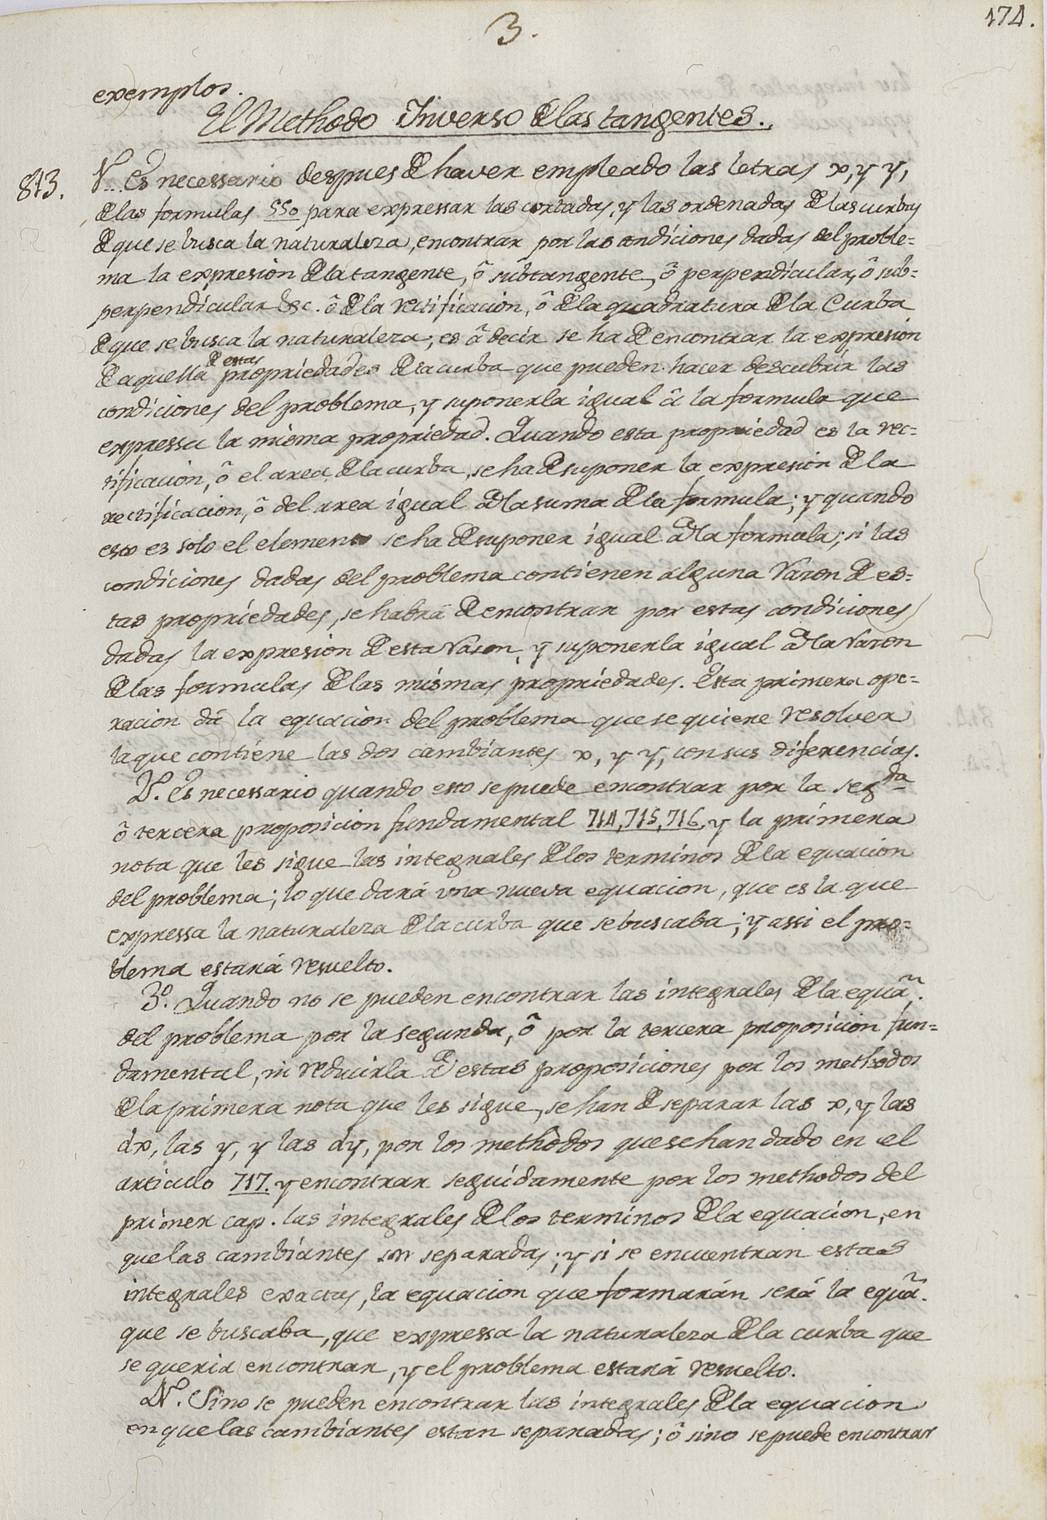 174.
3.
exemplos.
El Methodo Inverso de las tangentes.
813.
1.º Es necessario despues de haver empleado las letras x, y y,
de las formulas 550 para expressar las cortadas, y las ordenadas de las curbas
de que se busca la naturaleza, encontrar por las condiciones dadas del proble=
ma la expresion de la tangente, ô subtangente, ô perpendicular, ô sub-
perpendicular &c. ô de la rectificacion, ô de la quadratura de la Curba
de que se busca la naturaleza; es â decir se ha de encontrar la expresion
de estas
de aquella propriedades de la curba que pueden hacer descubrir las
condiciones del problema, y suponerla igual â la formula que
expressa la misma propriedad. Quando esta propriedad es la rec=
tificacion, ô el area de la curba, se ha de suponer la expresion de la
rectificacion, ô del area igual â la suma de la formula; y quando
esto es solo el elemento se ha de suponer igual â la formula; si las
condiciones dadas del problema contienen alguna Razon de es=
tas propriedades, se habrá de encontrar por estas condiciones
dadas la expresion de esta Razon, y suponerla igual â la Razon
de las formulas de las mismas propriedades. Esta primera ope=
racion dá la equacion del problema que se quiere resolver
la que contiene las dos cambiantes x, y y, con sus diferencias.
2.º Es necessario quando esto se puede encontrar por la segda
ô tercera proposicion fundamental 714, 715, 716, y la primera
nota que les sigue las integrales de los terminos de la equacion
del problema; lo que dará una nueva equacion, que es la que
expressa la naturaleza de la curba que se buscaba; y assi el pro=
blema estará resuelto.
3.º Quando no se pueden encontrar las integrales de la equãn.
del problema por la segunda, ô por la tercera proposicion fun=
damental, ni reducirla â estas proposiciones por los methodos
de la primera nota que les sigue, se han de separar las x, y las
dx, las y, y las dy, por los methodos que se han dado en el
articulo 717. y encontrar seguidamente por los methodos del
primer cap. las integrales de los terminos de la equacion, en
que las cambiantes son separadas; y si se encuentran estas
integrales exactas, la equacion que formarán será la equãn.
que se buscaba, que expressa la naturaleza de la curba que
se queria encontrar, y el problema estará resuelto.
4.º Sino se pueden encontrar las integrales de la equacion
en que las cambiantes estan separadas; ô sino se puede encontrar